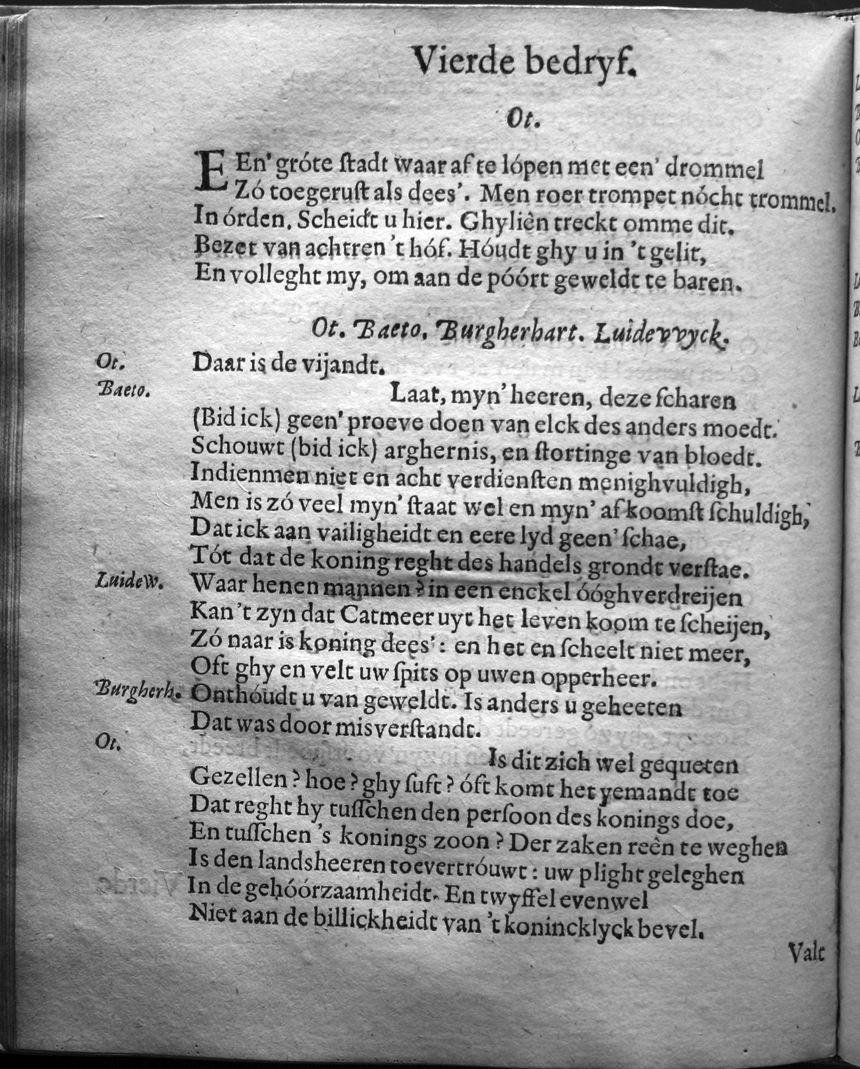 Vierde bedryf.
Ot.
EEn' gróte ſtadt waar af te lópen met een' drommel
Zó toegeruſt als dees'. Men roer trompet nócht trommel.
In órden. Scheidt u hier. Ghyliên treckt omme dit.
Bezet van achtren 't hóf. Hóudt ghy u in 't gelit,
En volleght my, om aan de póórt geweldt te baren.
Ot. Baeto. Burgherhart. Luidevvyck.
Ot. Daar is de vijandt.
Baeto. Laat, myn' heeren, deze ſcharen
(Bid ick) geen' proeve doen van elck des anders moedt.
Schouwt (bid ick) arghernis, en ſtortinge van bloedt.
Indienmen niet en acht verdienſten menighvuldigh,
Men is zó veel myn' ſtaat wel en myn' afkoomſt ſchuldigh,
Dat ick aan vailigheidt en eere lyd geen' ſchae,
Tót dat de koning reght des handels grondt verſtae.
Luidew. Waar henen mannen? in een enckel óóghverdreijen
Kan 't zyn dat Catmeer uyt het leven koom te ſcheijen,
Zó naar is koning dees': en het en ſcheelt niet meer,
Oft ghy en velt uw ſpits op uwen opperheer.
Burgherh. Onthóudt u van geweldt. Is anders u geheeten
Dat was door misverſtandt.
Ot. Is dit zich wel gequeten
Gezellen? hoe? ghy ſuft? óft komt het yemandt toe
Dat reght hy tuſſchen den perſoon des konings doe,
En tuſſchen 's konings zoon? Der zaken reên te weghen
Is den landsheeren toevertróuwt: uw plight geleghen
In de gehóórzaamheidt. En twyffel evenwel
Niet aan de billickheidt van 't konincklyck bevel.
Valt